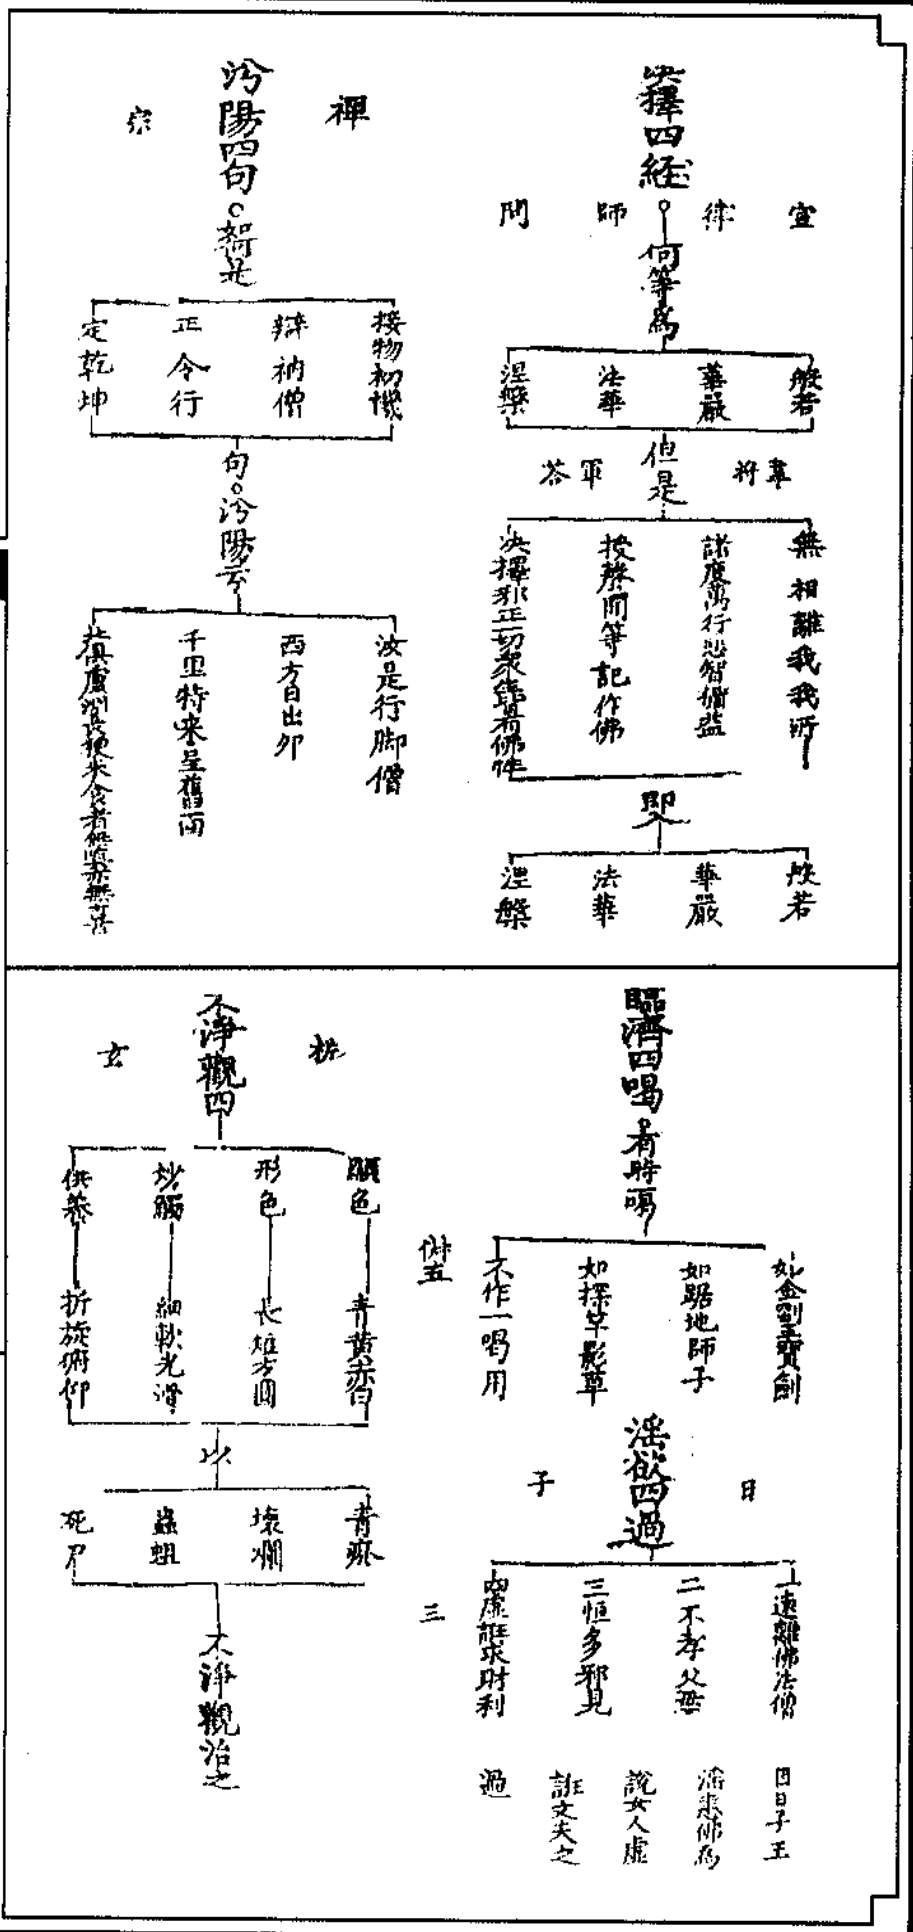 決擇四経
宣律師問
何等為
般若
華嚴
法華
涅槃
韋將軍答
但是
無相離我我所
諸度萬行悲智脩益
授聲聞等記作佛
決擇邪正一切衆生皆有佛性
即入
般若
華嚴
法華
涅槃
禪宗
汾陽四句
接物初機
辯衲僧
正令行
定乾坤
句
汾陽云
汝是行脚僧
西方日出卯
千里特來呈舊面
臨濟四喝
有時喝
如金剛王寶劍
如踞地師子
如探竿影草
不作一喝用
淫欲四過
日子
一遠離佛法僧
二不孝父母
三恒多邪見
四虛誑求財利
三
因日子王
淫患佛為
說女人虛
誑丈夫之
過
不淨觀四
玄
顯色
形色
妙觸
供養
青黃赤白
長短方圓
細軟光滑
折旋俯仰
以
青瘀
壞爛
蟲蛆
死屍
不淨觀治之